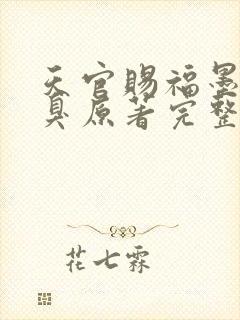 天官赐福墨
臭原著完整
花七霖